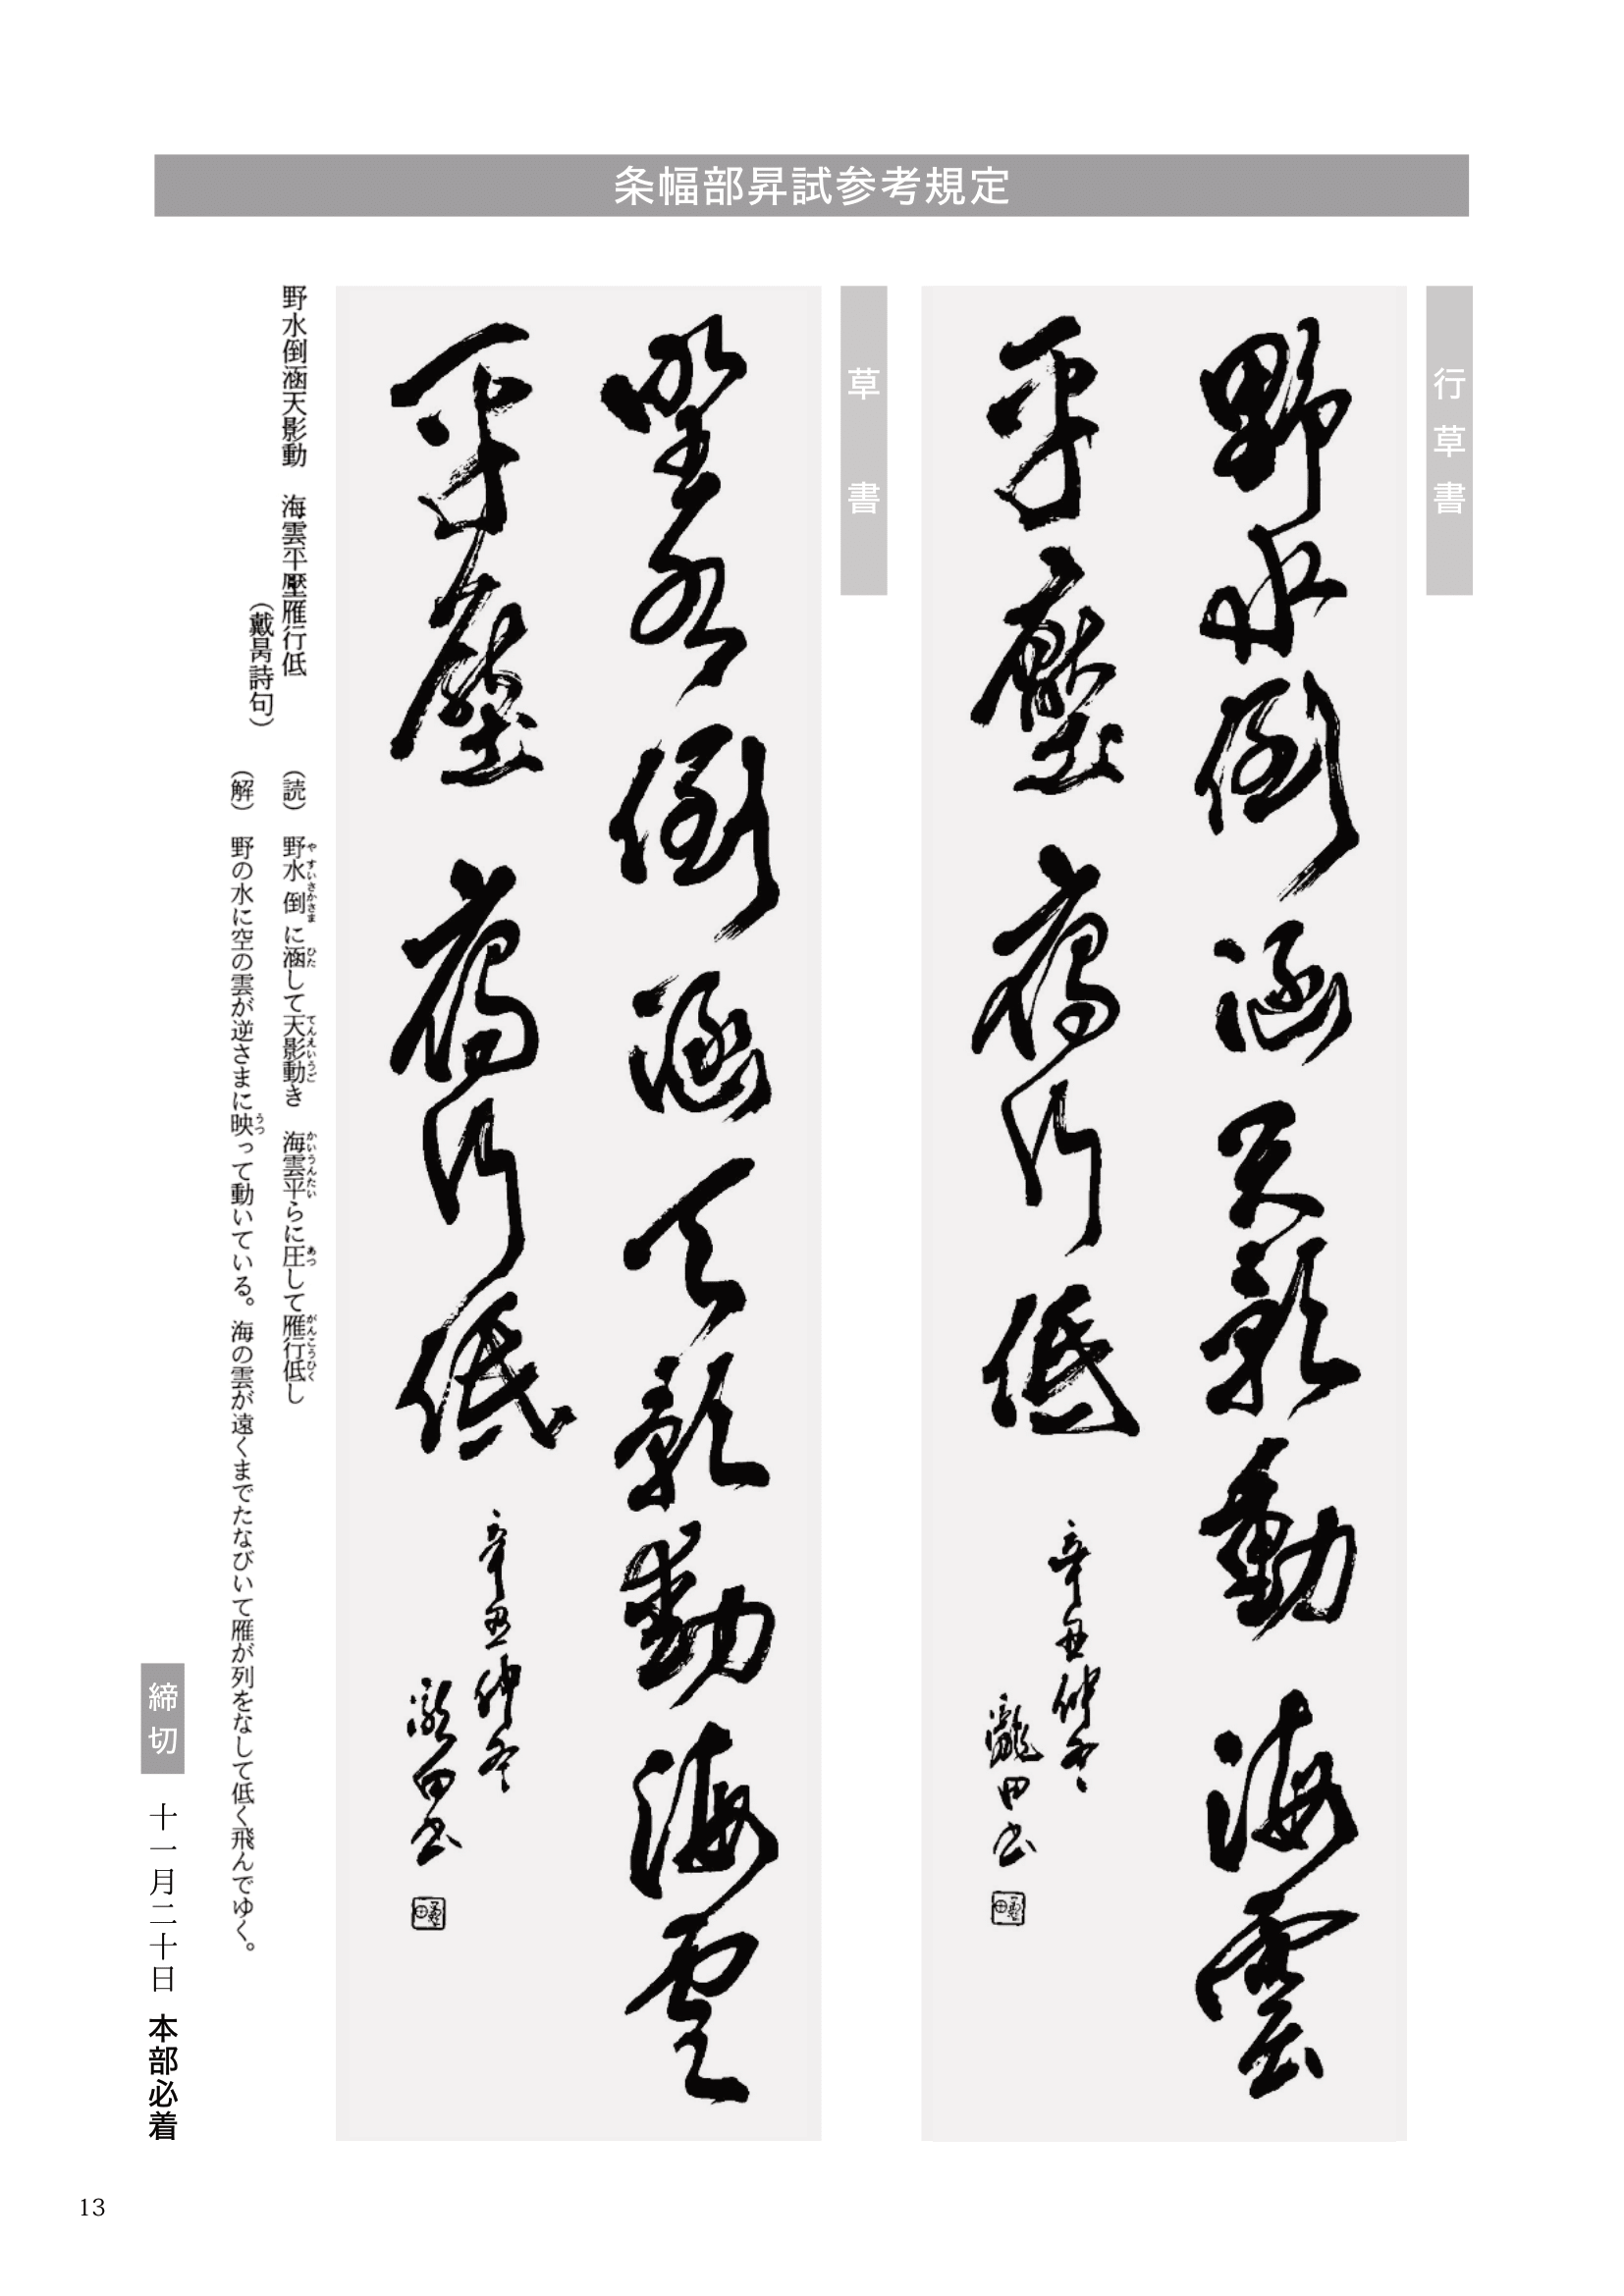 条幅部昇試参考規定
行草書
野水倒涵天影動海雲
平壓雁行低
辛丑仲冬
瀧田書
草書
野水倒涵天影動海雲
平壓雁行低
辛丑仲冬
瀧田書
野水倒涵天影動　海雲平壓雁行低
（戴昺詩句）
（読）　野水倒に涵して天影動き　海雲平らに圧して雁行低し
や すいさかさま ひた てんえいうご かいうんたい あつ がんこうひく
（解）　野の水に空の雲が逆さまに映って動いている。海の雲が遠くまでたなびいて雁が列をなして低く飛んでゆく。
うつ
締切　十一月二十日　本部必着
13